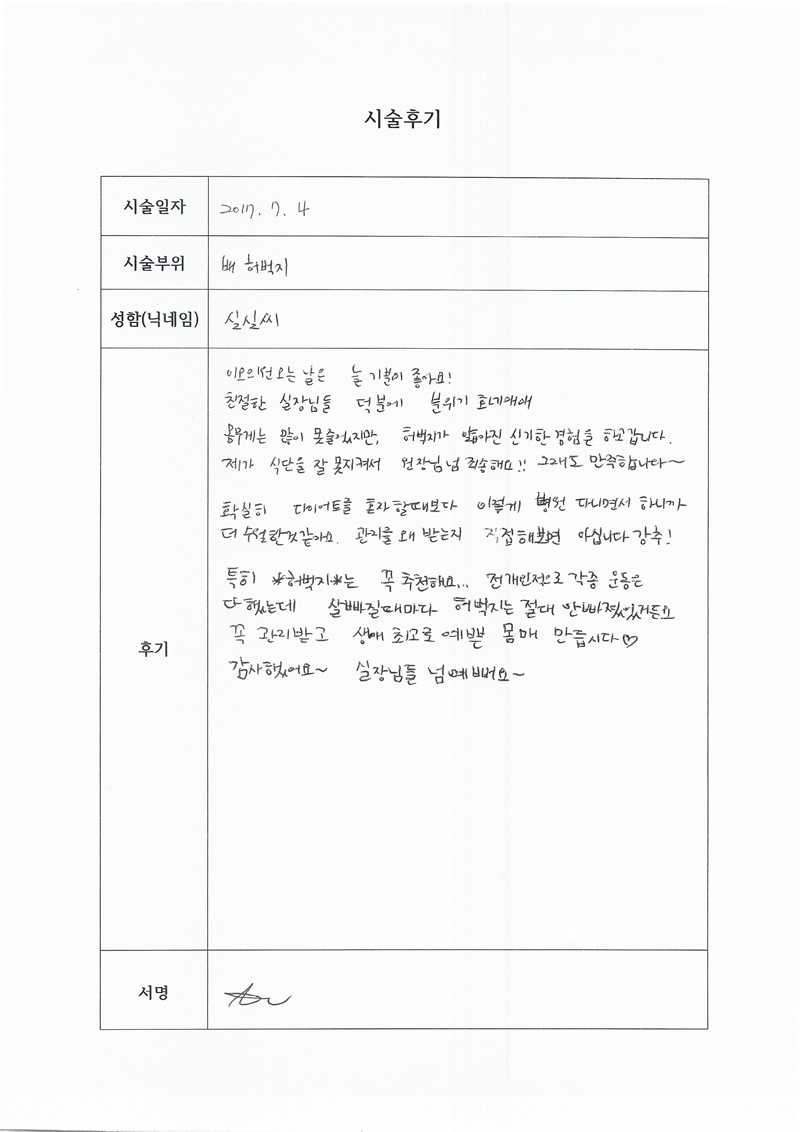 시술후기
시술일자 2017. 7. 4
시술부위 배 허벅지
성함(닉네임) 실실씨
후기
이오의선오는 날은 늘 기분이 좋아요!
친절한 실장님들 덕분에 분위기 화기애애
몸무게는 많이 못줄었지만, 허벅지가 얇아진 신기한 경험을 하고갑니다.
제가 식단을 잘 못지켜서 원장님넘 죄송해요!! 그래도 만족합니다~
확실히 다이어트를 혼자 할때보다 이렇게 병원 다니면서 하니까
더 수월한것같아요. 관리를 왜 받는지 직접해보면 아십니다 강추!
특히 *허벅지*는 꼭 추천해요... 전개인적으로 각종 운동은
다 했는데 살빠질때마다 허벅지는 절대 안빠졌었거든요
꼭 관리받고 생애 최고로 예쁜 몸매 만듭시다♡
감사했어요~ 실장님들 넘예뻐요~
서명